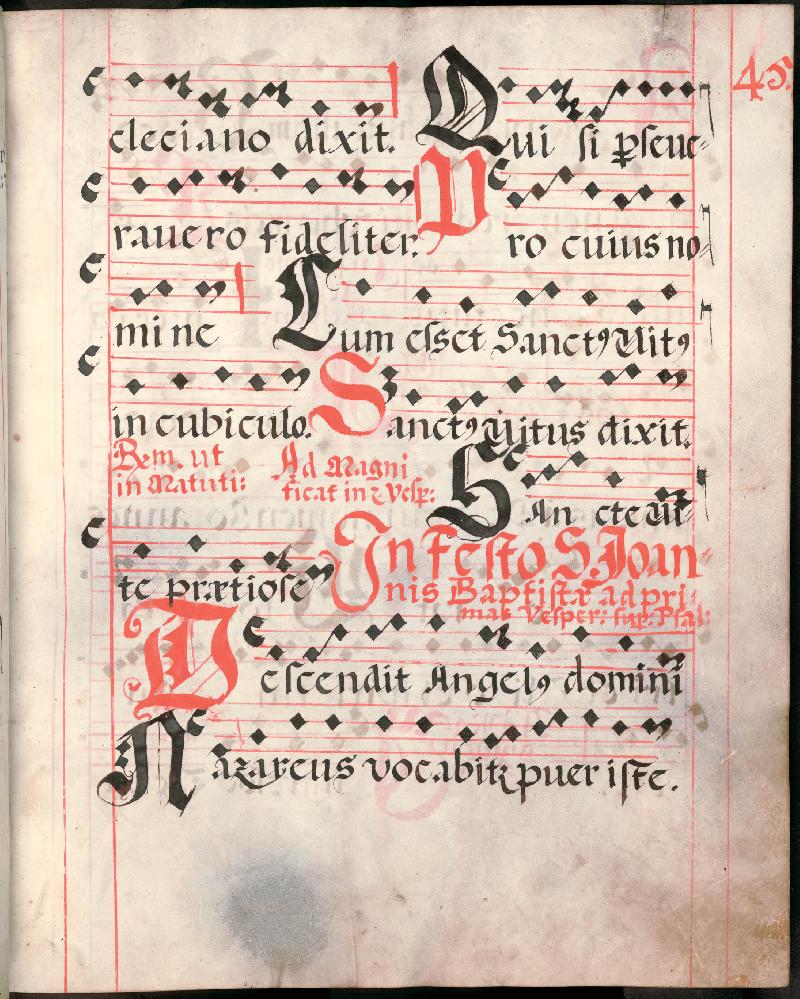 45.
cleciano dixit. Qui si ꝑseue-
rauero fideliter. Pro cuius no-
mine Cum esset Sanctꝯ Uitꝯ
in cubiculo. Sanctꝯ Uitus dixit.
Rem. ut Ad Magni
in Matuti: ficat in 2 Vesp: SAncte Ui-
te prætiose In Festo S. Joan-
nis Baptistæ ad pri-
mas Vesper: sup. Psal:
Descendit Angelꝯ domini
Nazareus vocabitꝛ puer iste.